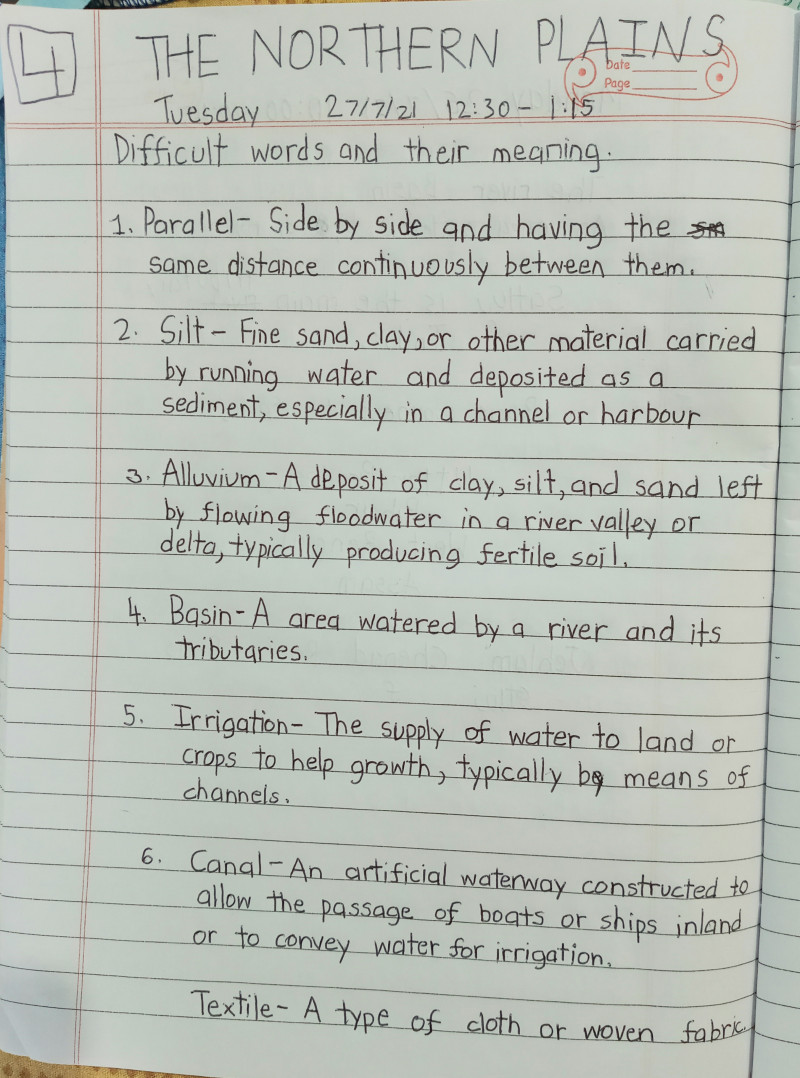 4
THE NORTHERN PLAINS
Date
Page
Tuesday 27/7/21 12:30 - 1:15
Difficult words and their meaning.
1. Parallel- Side by side and having the sm
same distance continuously between them.
2. Silt - Fine sand, clay, or other material carried
by running water and deposited as a
sediment, especially in a channel or harbour
3. Alluvium - A deposit of clay, silt, and sand left
by flowing floodwater in a river valley or
delta, typically producing fertile soil.
4. Basin - A area watered by a river and its
tributaries.
5. Irrigation - The supply of water to land or
crops to help growth, typically by means of
channels.
6. Canal - An artificial waterway constructed to
allow the passage of boats or ships inland
or to convey water for irrigation.
Textile - A type of cloth or woven fabric.